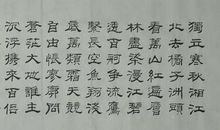 獨立寒秋湘江
北去橘子洲頭
看萬山紅遍層
林盡染漫江碧
透百舸爭流鷹
擊長空魚翔淺
底萬類霜天競
自由悵寥廓問
蒼茫大地誰主
沉浮攜來百侶